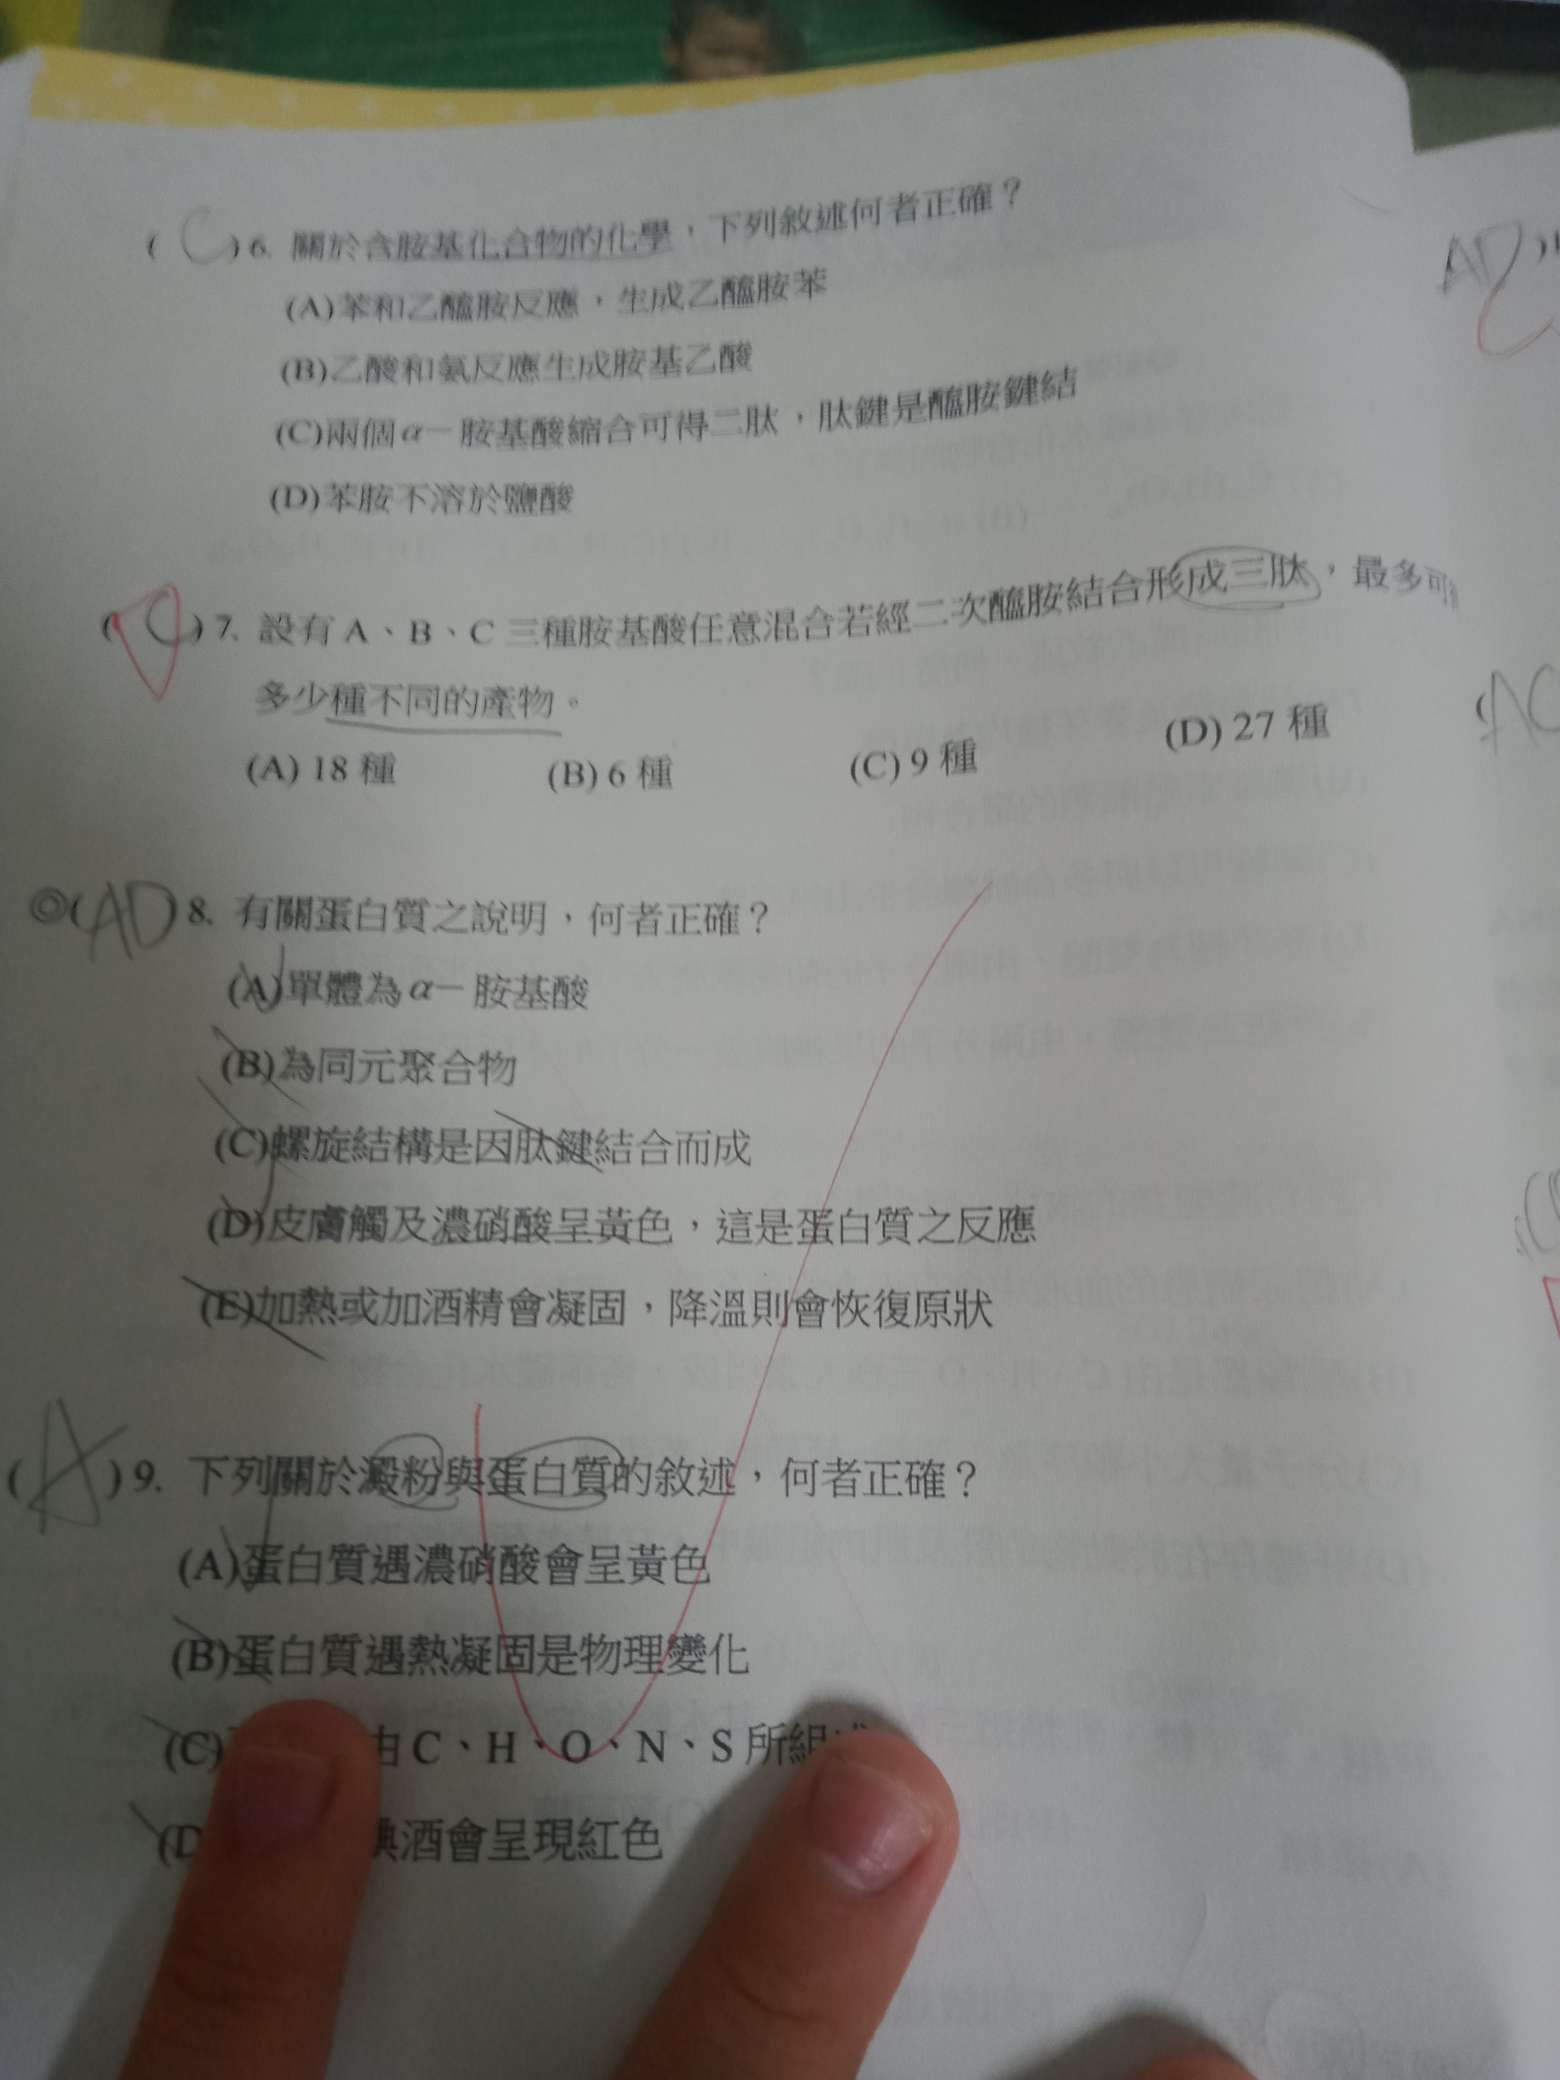 (C) 6. 關於含胺基化合物的化學，下列敘述何者正確？
(A)苯和乙醯胺反應，生成乙醯胺苯
(B)乙酸和氨反應生成胺基乙酸
(C)兩個α－胺基酸縮合可得二肽，肽鍵是醯胺鍵結
(D)苯胺不溶於鹽酸
(C) 7. 設有 A、B、C 三種胺基酸任意混合若經二次醯胺結合形成三肽，最多可
多少種不同的產物。
(A) 18 種 (B) 6 種 (C) 9 種 (D) 27 種
◎(AD) 8. 有關蛋白質之說明，何者正確？
(A)單體為α－胺基酸
(B)為同元聚合物
(C)螺旋結構是因肽鍵結合而成
(D)皮膚觸及濃硝酸呈黃色，這是蛋白質之反應
(E)加熱或加酒精會凝固，降溫則會恢復原狀
(A) 9. 下列關於澱粉與蛋白質的敘述，何者正確？
(A)蛋白質遇濃硝酸會呈黃色
(B)蛋白質遇熱凝固是物理變化
(C) 由 C、H、O、N、S 所組
(D 碘酒會呈現紅色
AD
AC